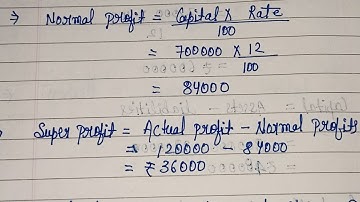 ⇒ Normal Profit = Capital × Rate
100
= 700000 × 12
100
= 84000
Super profit = Actual profit - Normal Profits
= 120000 - 84000
= ₹36000